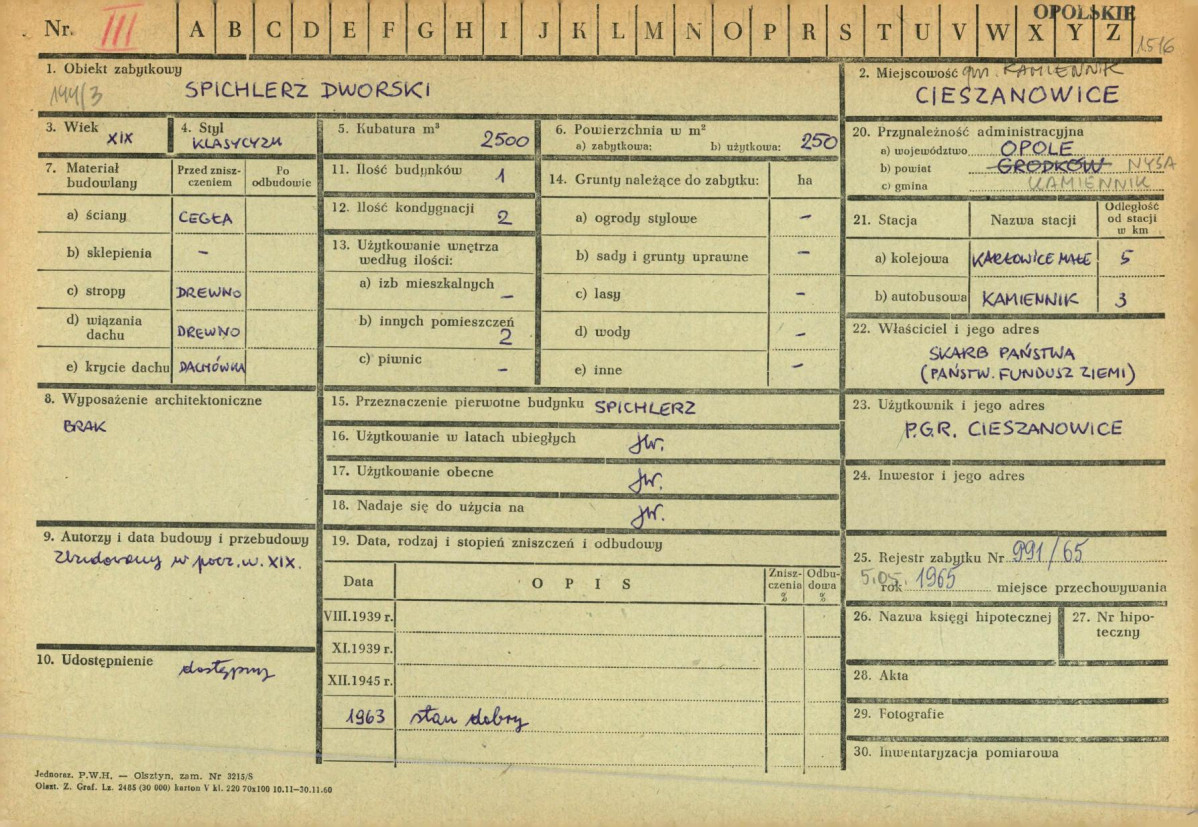 OPOLSKIE
Nr. III A B C D E F G H I J K L M N O P R S T U V W X Y Z
1516
1. Obiekt zabytkowy
144/3
SPICHLERZ DWORSKI
2. Miejscowość gm. KAMIENNIK
CIESZANOWICE
3. Wiek
XIX
4. Styl
KLASYCYZM
5. Kubatura m³
2500
6. Powierzchnia w m²
a) zabytkowa: b) użytkowa: 250
7. Materiał budowlany
Przed zniszczeniem
Po odbudowie
a) ściany CEGŁA
b) sklepienia –
c) stropy DREWNO
d) wiązania dachu DREWNO
e) krycie dachu DACHÓWKA
8. Wyposażenie architektoniczne
BRAK
9. Autorzy i data budowy i przebudowy
Zbudowany w pocz. w. XIX.
10. Udostępnienie dostępny
11. Ilość budynków 1
12. Ilość kondygnacji 2
13. Użytkowanie wnętrza
według ilości:
a) izb mieszkalnych –
b) innych pomieszczeń 2
c) piwnic –
14. Grunty należące do zabytku: ha
a) ogrody stylowe –
b) sady i grunty uprawne –
c) lasy –
d) wody –
e) inne –
15. Przeznaczenie pierwotne budynku SPICHLERZ
16. Użytkowanie w latach ubiegłych jw.
17. Użytkowanie obecne jw.
18. Nadaje się do użycia na jw.
19. Data, rodzaj i stopień zniszczeń i odbudowy
Data OPIS Zniszczenia % Odbudowa %
VIII.1939 r.
XI.1939 r.
XII.1945 r.
1963 stan dobry
20. Przynależność administracyjna
a) województwo OPOLE
b) powiat GRODKÓW NYSA
c) gmina KAMIENNIK
21. Stacja Nazwa stacji Odległość od stacji w km
a) kolejowa KARŁOWICE MAŁE 5
b) autobusowa KAMIENNIK 3
22. Właściciel i jego adres
SKARB PAŃSTWA
(PAŃSTW. FUNDUSZ ZIEMI)
23. Użytkownik i jego adres
P.G.R. CIESZANOWICE
24. Inwestor i jego adres
25. Rejestr zabytku Nr 991/65
5.05. rok 1965 miejsce przechowywania
26. Nazwa księgi hipotecznej
27. Nr hipoteczny
28. Akta
29. Fotografie
30. Inwentaryzacja pomiarowa
Jednoraz. P.W.H. — Olsztyn, zam. Nr 3215/S
Olszt. Z. Graf. Lz. 2485 (30 000) karton V kl. 220 70x100 10.11—30.11.60